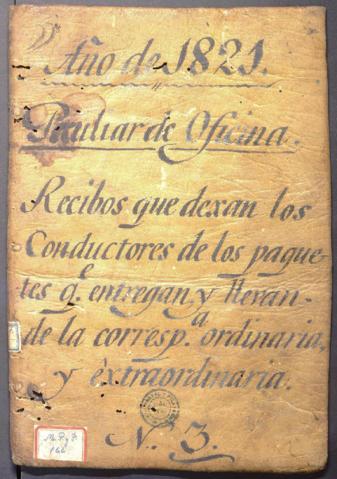 Año de 1821.
Peculiar de Oficina.
Recibos que dexan los
Conductores de los paque-
tes q.e entregan, y llevan
de la corresp.a ordinaria,
y extraordinaria.
N. 3.